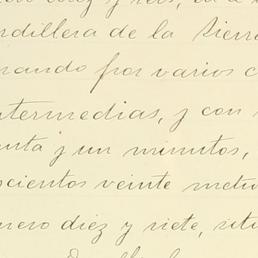 diez y seis,
rdillera de la Sierra
nando por varios c
ntermedias, y con
enta y un minutos,
scientos veinte metro
mero diez y siete, situ